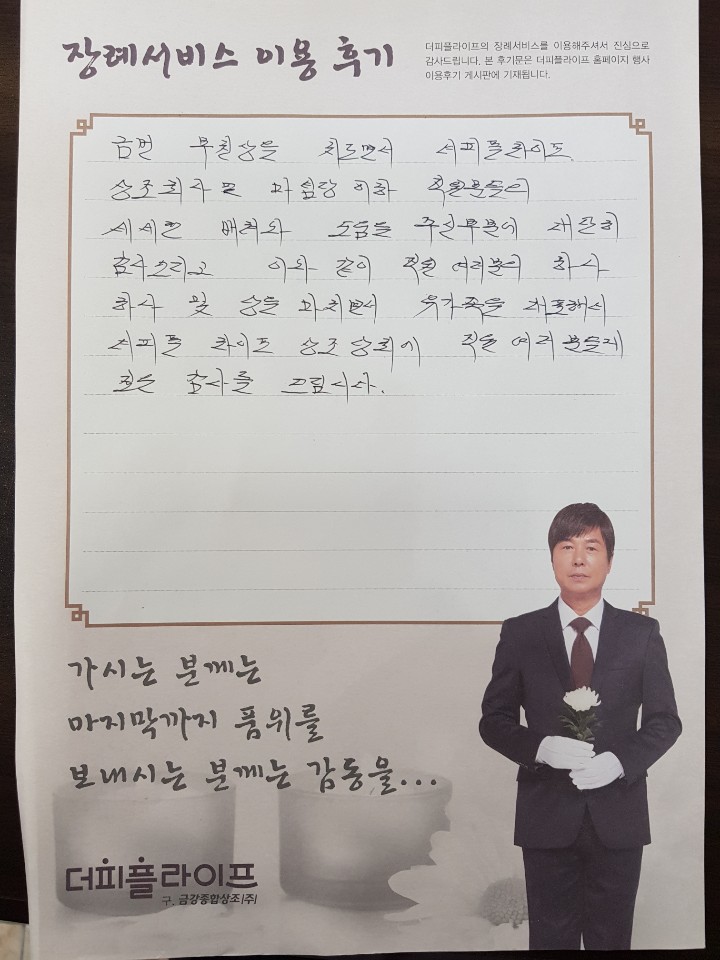 장례서비스 이용 후기
더피플라이프의 장례서비스를 이용해주셔서 진심으로
감사드립니다. 본 후기문은 더피플라이프 홈페이지 행사
이용후기 게시판에 기재됩니다.
금번 부친상을 치르면서
상조회사 직원분들의
세세한 배려와 도움을 주신부분에 대단히
감사드리고 이와 같이 직원 여러분의
및 상을 마치면서 유가족을 대표해서
더피플 라이프 직원 여러분들께
감사를 드립니다.
가시는 분께는
마지막까지 품위를
보내시는 분께는 감동을...
더피플라이프
구. 금강종합상조(주)